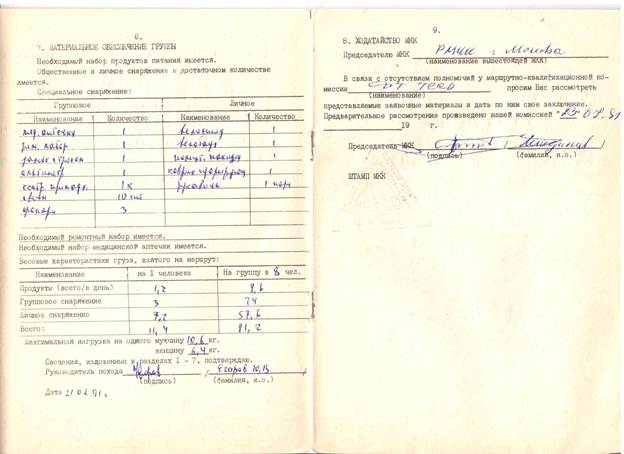 8.
7. МАТЕРИАЛЬНОЕ ОБЕСПЕЧЕНИЕ ГРУППЫ
Необходимый набор продуктов питания имеется.
Общественное и личное снаряжение в достаточном количестве
имеется.
Специальное снаряжение:
Групповое Личное
Наименование Количество Наименование Количество
мед. аптечка 1 велосипед 1
рем. набор 1 1
1 1
альтиметр 1 коврик 1
1к рукавицы 1 пара
10 шт
фонари 3
Необходимый ремонтный набор имеется.
Необходимый набор медицинской аптечки имеется.
Весовые характеристики груза, взятого на маршрут:
Наименование на 1 человека На группу в 8 чел.
Продукты (всего/в день) 1,2 9,6
Групповое снаряжение 3 24
Личное снаряжение 7,2 57,6
Всего: 11,4 91,2
Максимальная нагрузка на одного мужчину 10,6 кг.
женщину 6,4 кг.
Сведения, изложенные в разделах 1 - 7, подтверждаю.
Руководитель похода Егоров / Егоров Ю.В
(подпись) (фамилия, и.о.)
Дата 21.02.91г.
9.
8. ХОДАТАЙСТВО МКК
Председателю МКК РМКК г. Москва
(наименование вышестоящей МКК)
В связи с отсутствием полномочий у маршрутно-квалификационной ко-
миссии просим Вас рассмотреть
(наименование)
представляемые заявочные материалы и дать по ним свое заключение.
Предварительное рассмотрение произведено нашей комиссией "
19 г.
Председатель МКК
(подпись) (фамилия, и.о.)
ШТАМП МКК